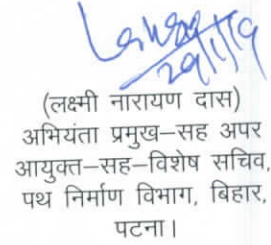 29/1/19
(लक्ष्मी नारायण दास)
अभियंता प्रमुख–सह अपर
आयुक्त–सह–विशेष सचिव,
पथ निर्माण विभाग, बिहार,
पटना।